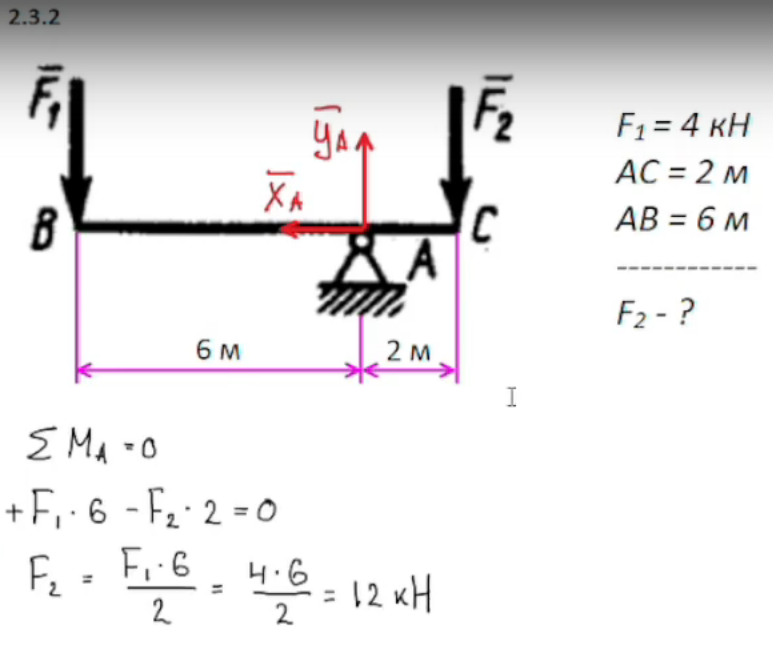 2.3.2
F̅₁
y̅A
F̅₂
x̅A
B
C
A
6 м
2 м
F₁ = 4 кН
AC = 2 м
AB = 6 м
------------
F₂ - ?
Σ MA = 0
+F₁ · 6 - F₂ · 2 = 0
F₂ = F₁·6/2 = 4·6/2 = 12 кН